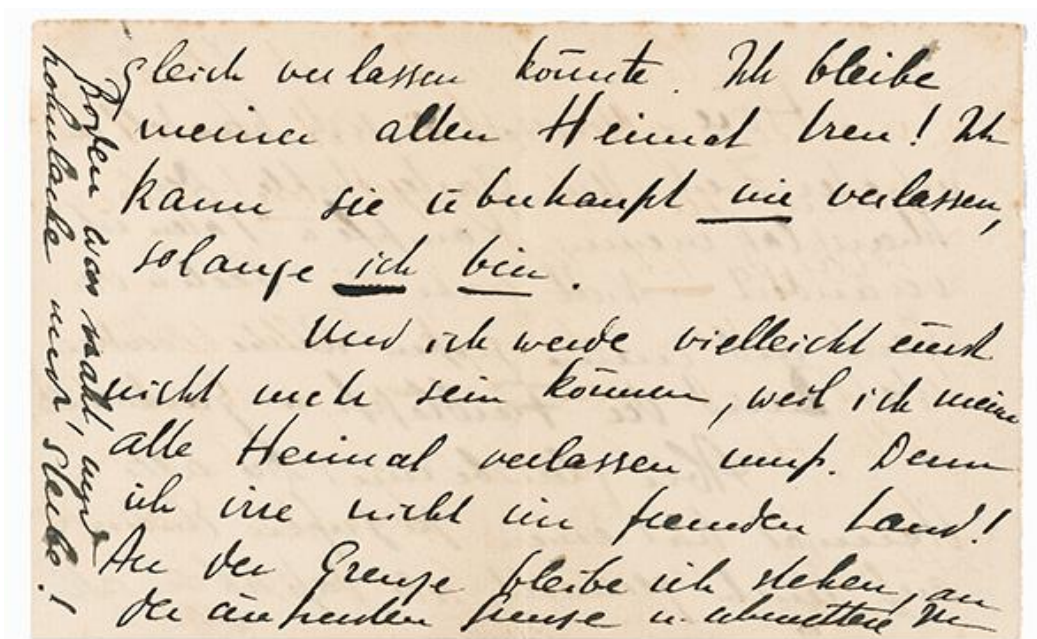 gleich verlassen könnte. Ich bleibe
meiner alten Heimat treu! Ich
kann sie überhaupt nie verlassen,
solange ich bin.
Und ich werde vielleicht einst
nicht mehr sein können, weil ich meine
alte Heimat verlassen muß. Denn
ich irre nicht im fremden Land!
An der Grenze bleibe ich stehen, an
der äußersten Grenze u.
Boden war wahr, und